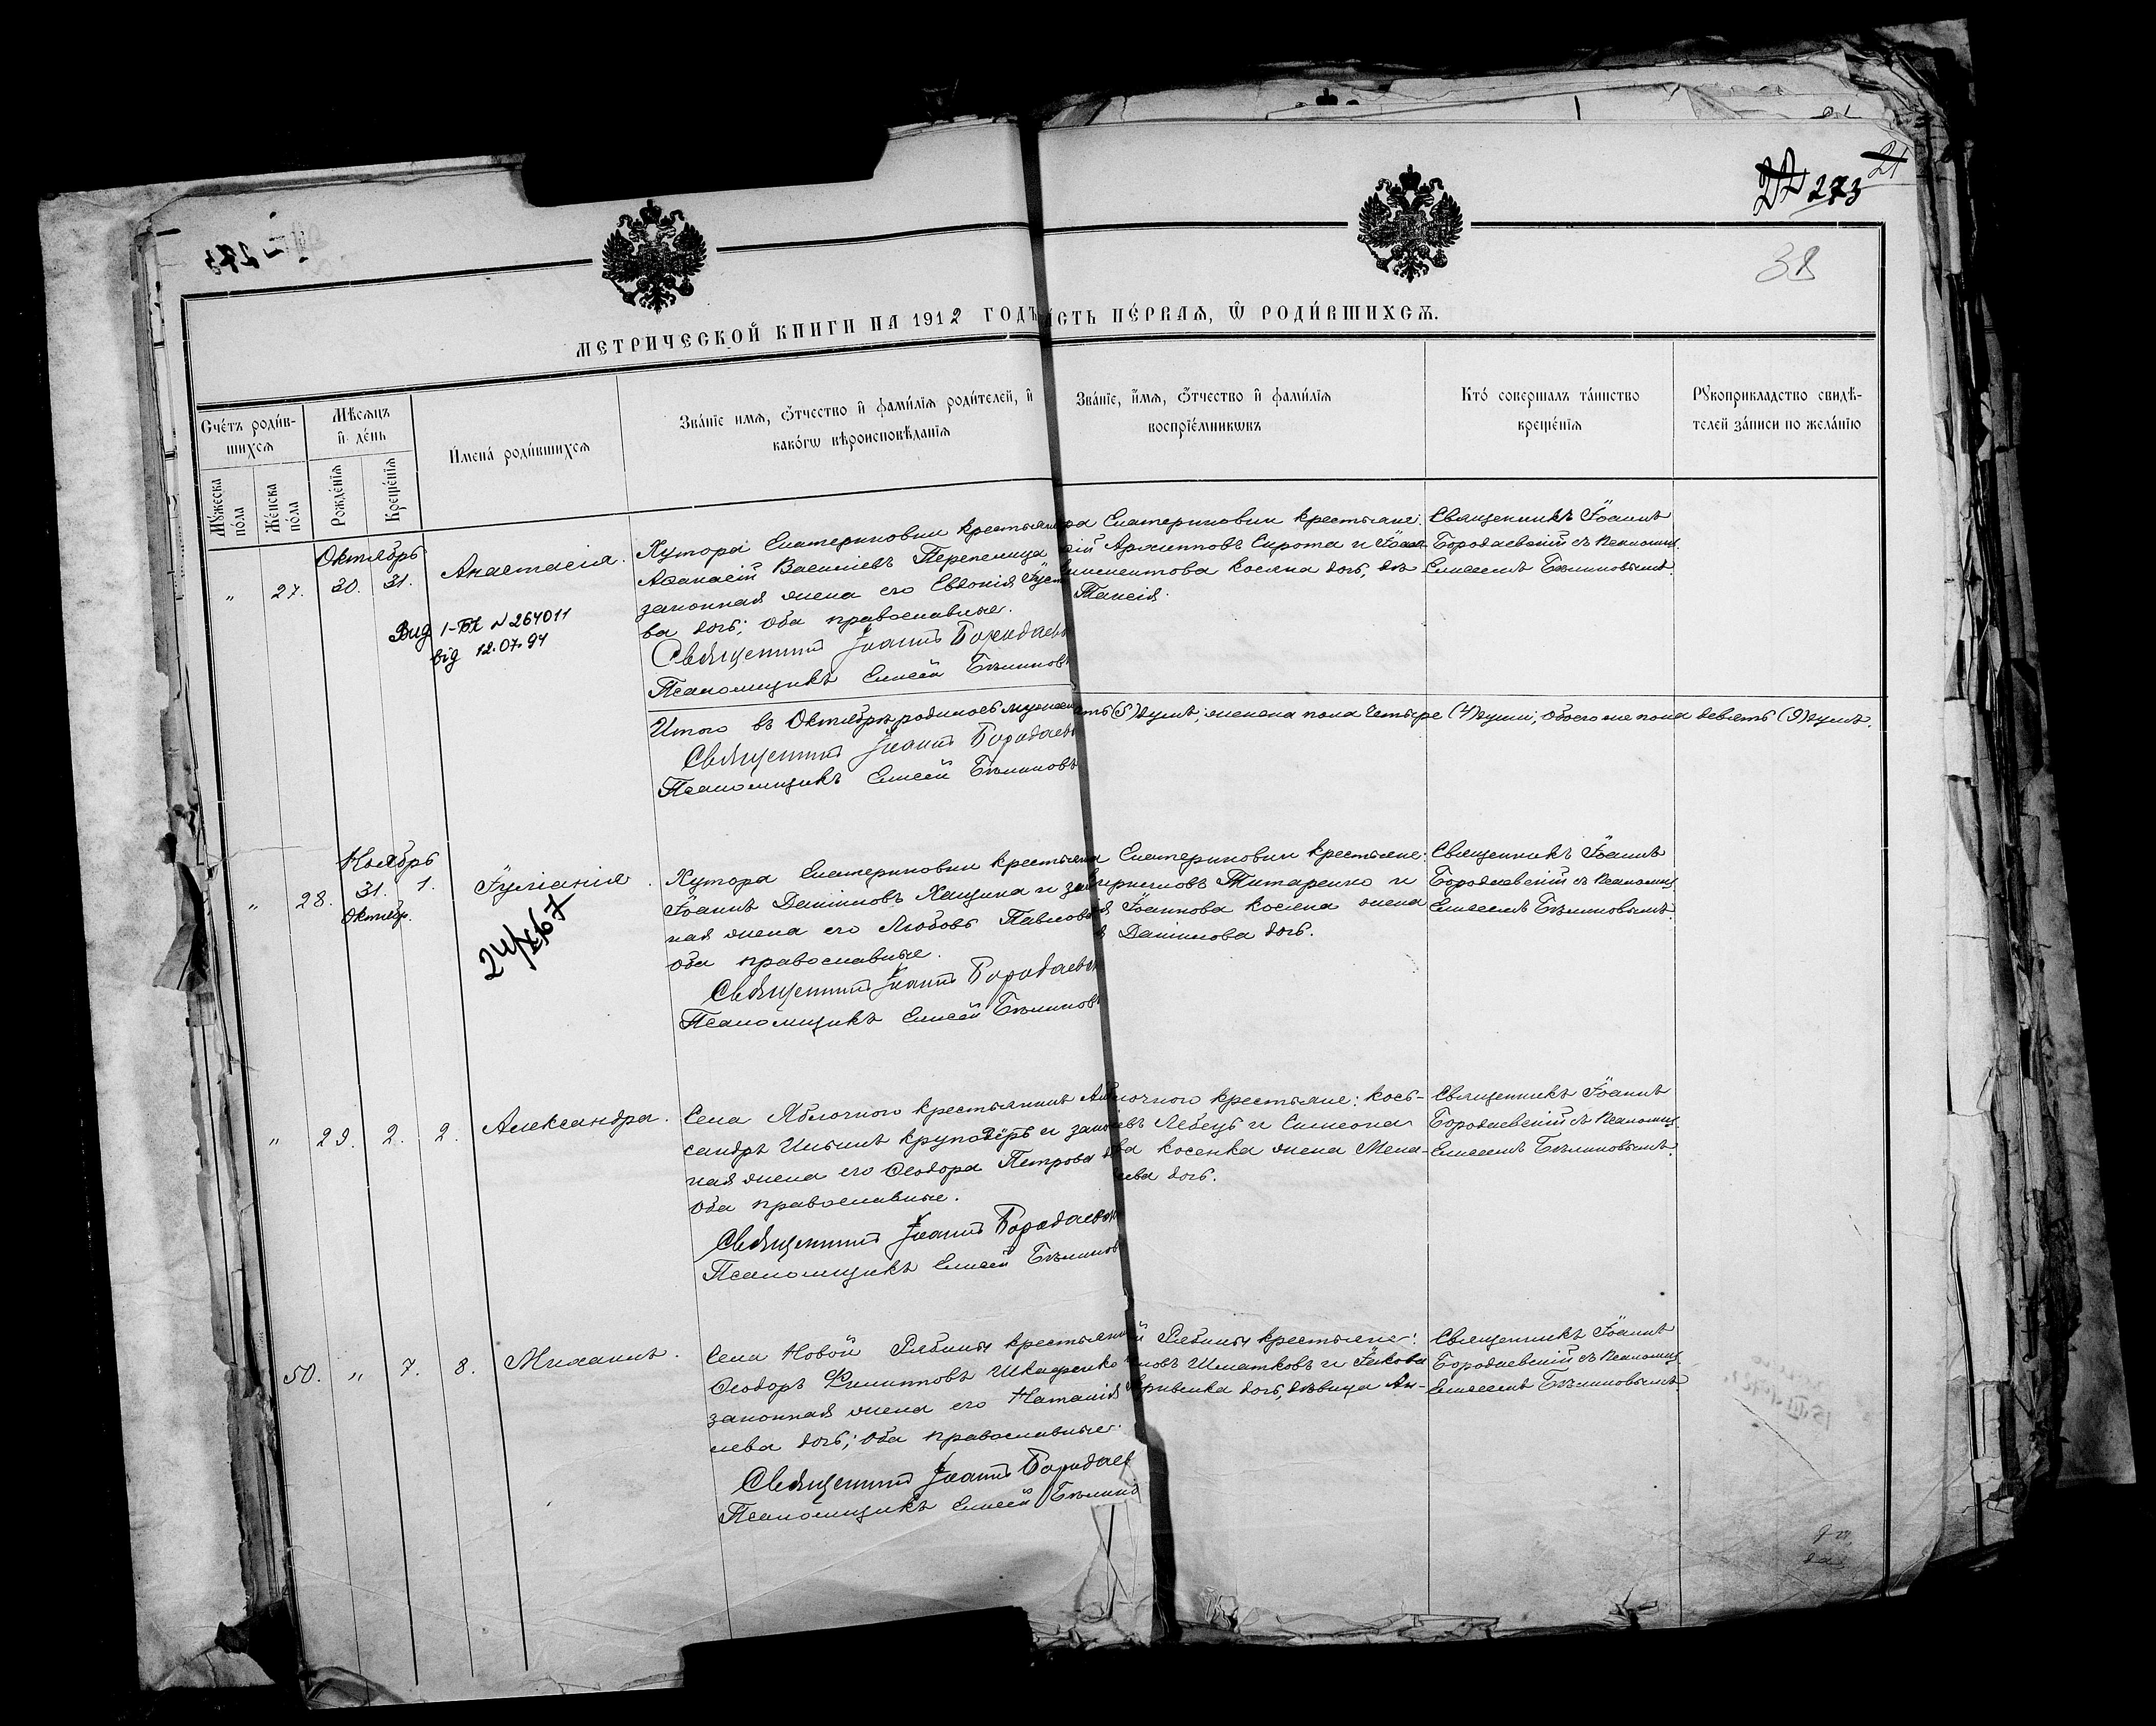 22 273 21
38
МЕТРИЧЕСКОЙ КНИГИ НА 1912 ГОДЪ
СТЬ ПЕ́РВАѦ, Ѿ РОДИ́ВШИХСѦ.
Сче́тъ роди́в-
шихсѧ
Мꙋ́жеска
по́ла
Же́нска
по́ла
Мѣсѧцъ
и̑ де́нь
Рожде́нїѧ
Креще́нїѧ
И̑мена̀ роди́вшихсѧ
Зва́нїе имѧ, ѻ҆́тчество и̑ фами́лїѧ роди́телей, и̑
како́гѡ вѣроисповѣ́данїѧ
Зва́нїе, и́мѧ, ѻ҆́тчество и̑ фами́лїѧ
воспрїе́мникѡвъ
Кто̀ соверша́лъ та́инство
креще́нїѧ
Рꙋкоприкладство свидѣ́-
телей за́писи по жела́нїю
Октябрь
" 27. 30. 31.
Анастасія.
Вид I-БК N 264011
від 12.07.94
Хутора Екатериновки крестьян
Аѳанасій Васильевъ Перепелица
законная жена его Евдокія Іуст
ва дочь; оба православные.
Священникъ Іоаннъ Бородаев
Псаломщикъ Елисей Бѣлинов
ра Екатериновки крестьяне:
Архипповъ Сирота и Іоан-
Климентова дочь, дѣ
Таисія.
Священникъ Іоаннъ
Бородаевскій съ псаломщ.
Елисеемъ Бѣлиновымъ.
Итого въ Октябрѣ родилось мужеск
ть (5) душъ; женска пола четыре (4) души; обоего же пола девять (9) душъ.
Священникъ Іоаннъ Бородаев
Псаломщикъ Елисей Бѣлинов
Ноябрь
" 28. 31. 1.
Октябр.
Іуліанія.
Хутора Екатериновки крестьян
Іоаннъ Даніиловъ Хащина и зак
ная жена его Любовь Павлов
оба православные.
Священникъ Іоаннъ Бородаевс
Псаломщикъ Елисей Бѣлинов
Екатериновки крестьяне:
Титаренко и
Іоаннова жена
Даніилова дочь.
Священникъ Іоаннъ
Бородаевскій съ псаломщ.
Елисеемъ Бѣлиновымъ.
" 29. 2. 2.
Александра.
Села Яблочного крестьянинъ Ал
сандръ Ильинъ Круподёръ и закон
ная жена его Ѳеодора Петрова
оба православные.
Священникъ Іоаннъ Бородаевс
Псаломщикъ Елисей Бѣлинов
лочного крестьяне: Кось-
евъ Лебедь и Симеона
ва Косенка жена Мела-
ева дочь.
Священникъ Іоаннъ
Бородаевскій съ псаломщ.
Елисеемъ Бѣлиновымъ.
50. " 7. 8.
Михаилъ.
Села Новой Рябины крестьянин
Ѳеодоръ Филипповъ Шкафенко
законная жена его Наталія
лева дочь; оба православные.
Священникъ Іоаннъ Бородаев
Псаломщикъ Елисей Бѣлинов
й Рябины крестьяне:
ловъ Шматковъ и Іакова
Кривенка дочь, дѣвица Ан-
Священникъ Іоаннъ
Бородаевскій съ псаломщ.
Елисеемъ Бѣлиновымъ.